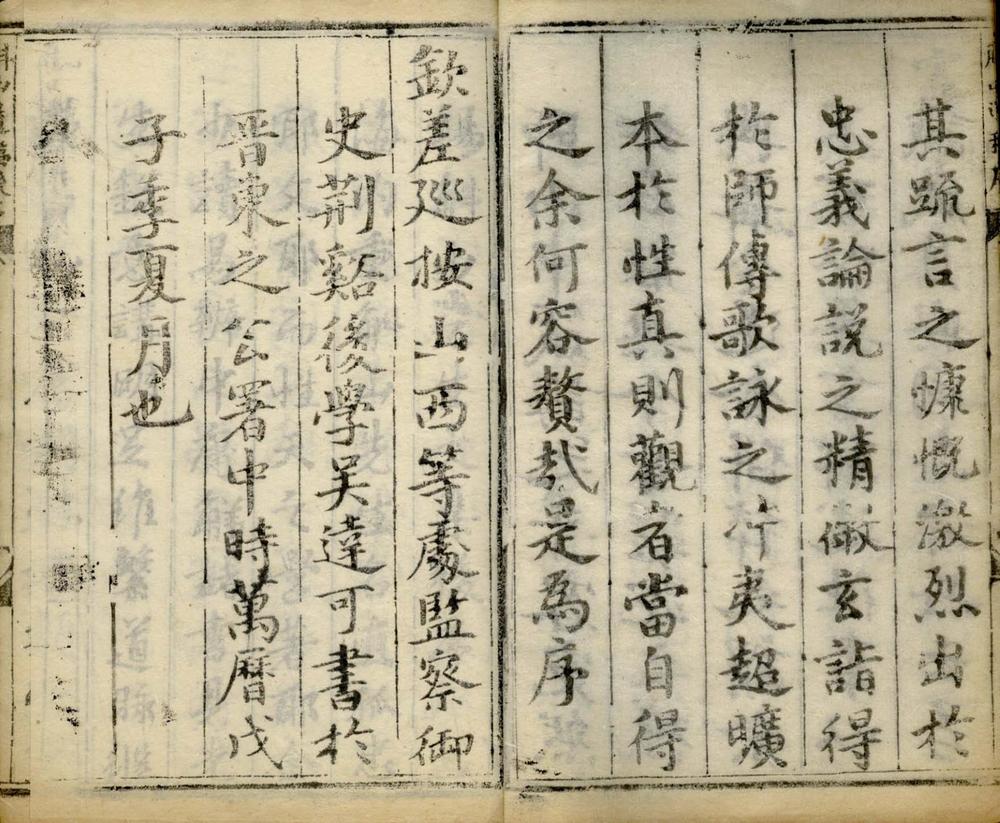 其疏言之慷慨激烈出於
忠義論說之精微玄詣得
於師傳歌詠之冲夷超曠
本於性真則觀者當自得
之余何容贅哉是為序
欽差廵按山西等處監察御
史荆谿後學吳達可書於
晋東之公署中時萬曆戊
子季夏月也